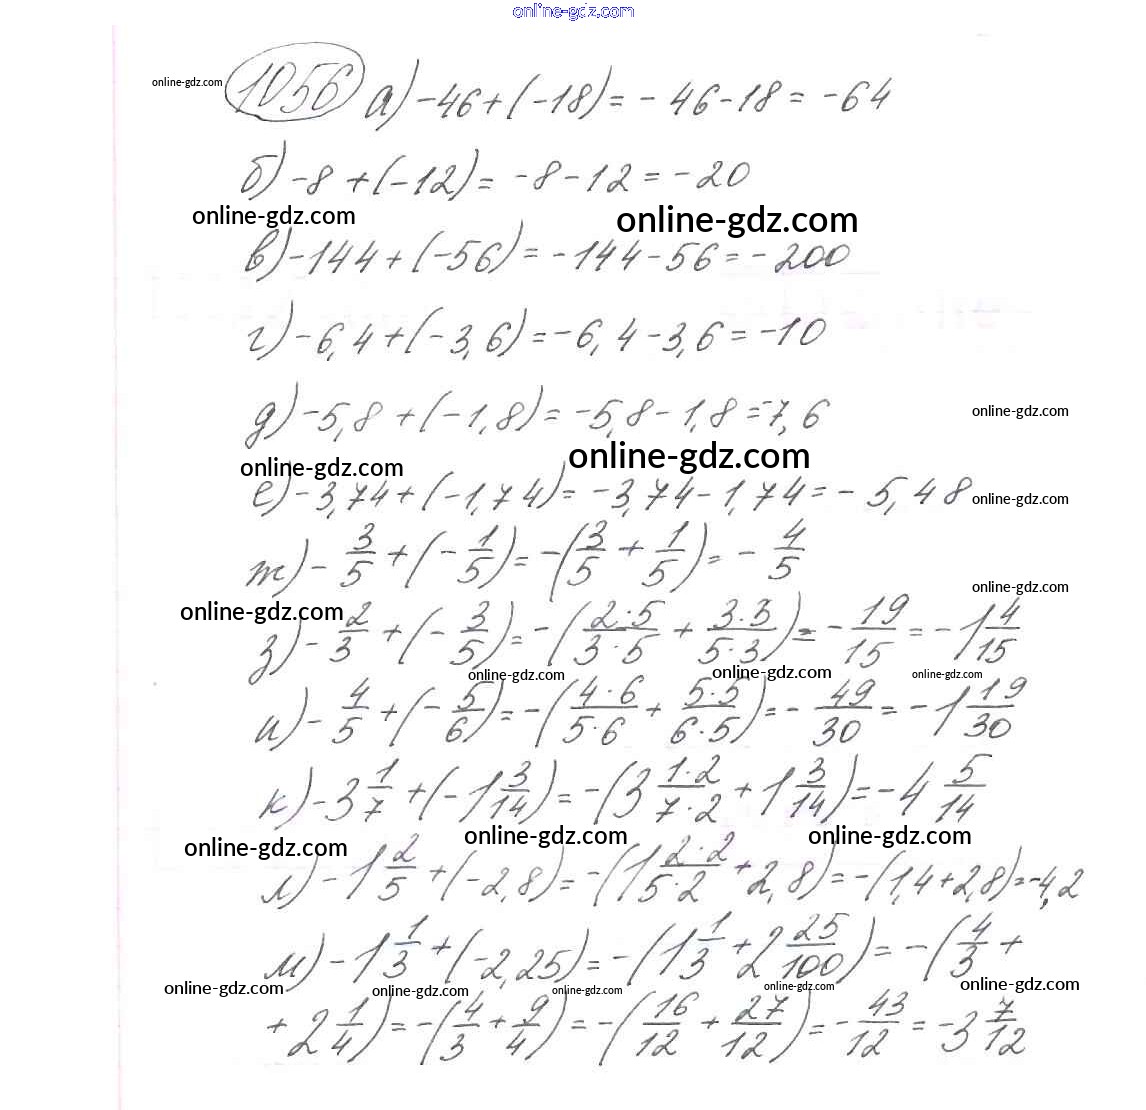 online-gdz.com
online-gdz.com
1056 а) -46 + (-18) = -46 - 18 = -64
б) -8 + (-12) = -8 - 12 = -20
online-gdz.com online-gdz.com
в) -144 + (-56) = -144 - 56 = -200
г) -6,4 + (-3,6) = -6,4 - 3,6 = -10
д) -5,8 + (-1,8) = -5,8 - 1,8 = -7,6
online-gdz.com
online-gdz.com online-gdz.com
е) -3,74 + (-1,74) = -3,74 - 1,74 = -5,48
online-gdz.com
ж) -3/5 + (-1/5) = -(3/5 + 1/5) = -4/5
online-gdz.com
online-gdz.com
з) -2/3 + (-3/5) = -(2·5/3·5 + 3·3/5·3) = -19/15 = -1 4/15
online-gdz.com online-gdz.com online-gdz.com
и) -4/5 + (-5/6) = -(4·6/5·6 + 5·5/6·5) = -49/30 = -1 19/30
к) -3 1/7 + (-1 3/14) = -(3 1·2/7·2 + 1 3/14) = -4 5/14
online-gdz.com online-gdz.com online-gdz.com
л) -1 2/5 + (-2,8) = -(1 2·2/5·2 + 2,8) = -(1,4 + 2,8) = -4,2
м) -1 1/3 + (-2,25) = -(1 1/3 + 2 25/100) = -(4/3 +
online-gdz.com online-gdz.com online-gdz.com online-gdz.com online-gdz.com
+ 2 1/4) = -(4/3 + 9/4) = -(16/12 + 27/12) = -43/12 = -3 7/12